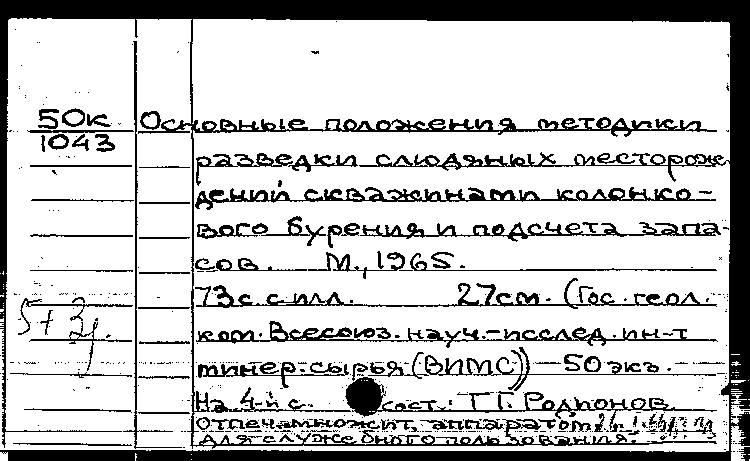 50к
1043
Основные положения методики
разведки слюдяных месторож
дений скважинами колонко-
вого бурения и подсчета запа-
сов. М., 1965.
73 с. с илл. 27 см. (Гос. геол.
5+3д.
ком. Всесоюз. науч.-исслед. ин-т
минер. сырья (ВИМС)) 50 экз.
На 4-й с. сост.: Г.Г. Родионов
Отпеч. множит. аппаратом
Для служебного пользования.